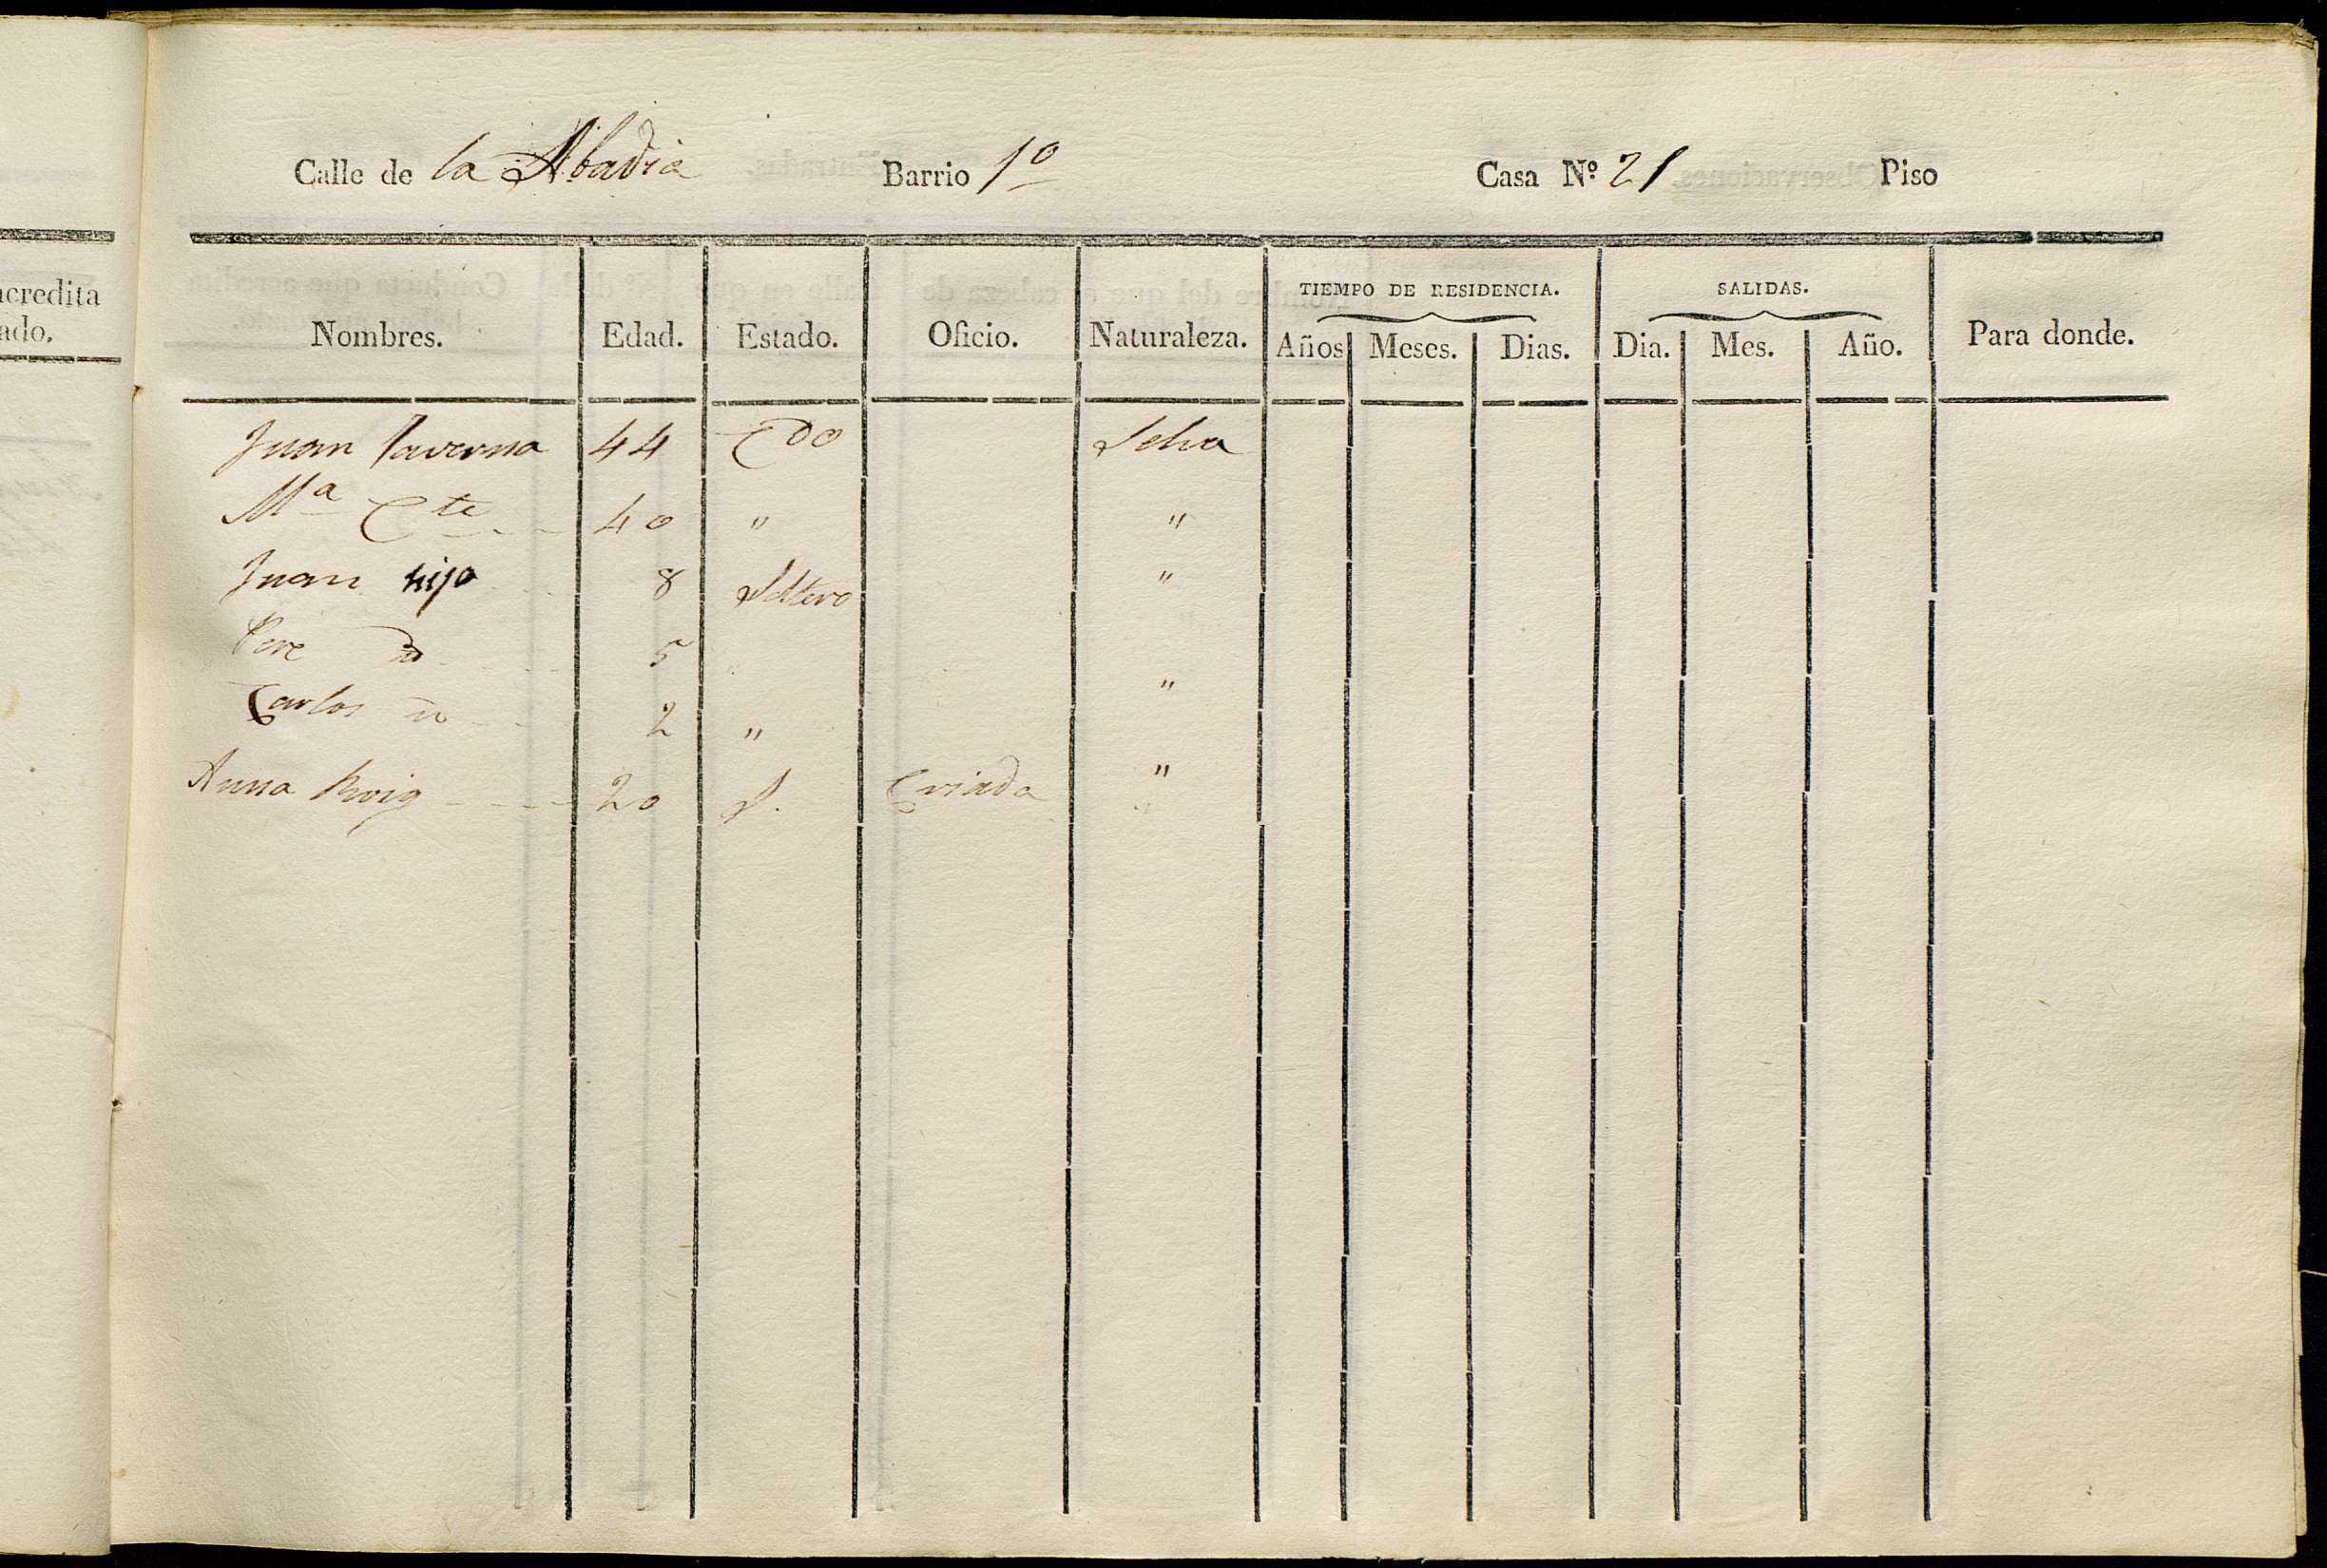 acredita
ado.
Calle de la Abadia Barrio 1º Casa Nº 21 Piso
TIEMPO DE RESIDENCIA. SALIDAS.
Nombres. Edad. Estado. Oficio. Naturaleza. Años Meses. Dias. Dia. Mes. Año. Para donde.
Juan Taverna 44 Cdo Selva
Mª Cte 40 " "
Juan hijo 8 Soltero "
Pere id 5 "
Carlos id 2 " "
Anna Roig 20 S. Criada "